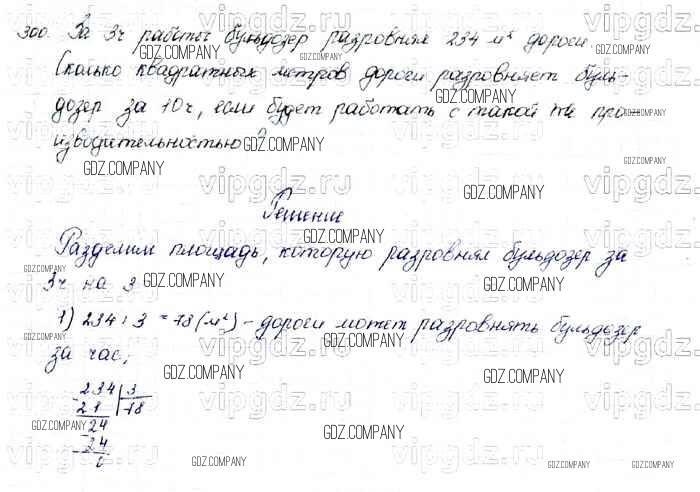 300. За 3ч работы бульдозер разровнял 234 м² дороги.
Сколько квадратных метров дороги разровняет буль-
дозер за 10ч, если будет работать с такой же про-
изводительностью?
Решение
Разделим площадь, которую разровнял бульдозер за
3ч на 3
1) 234 : 3 = 78 (м²) - дороги может разровнять бульдозер
за час;
234 | 3
21 | 78
24
24
0
vipgdz.ru
GDZ.COMPANY